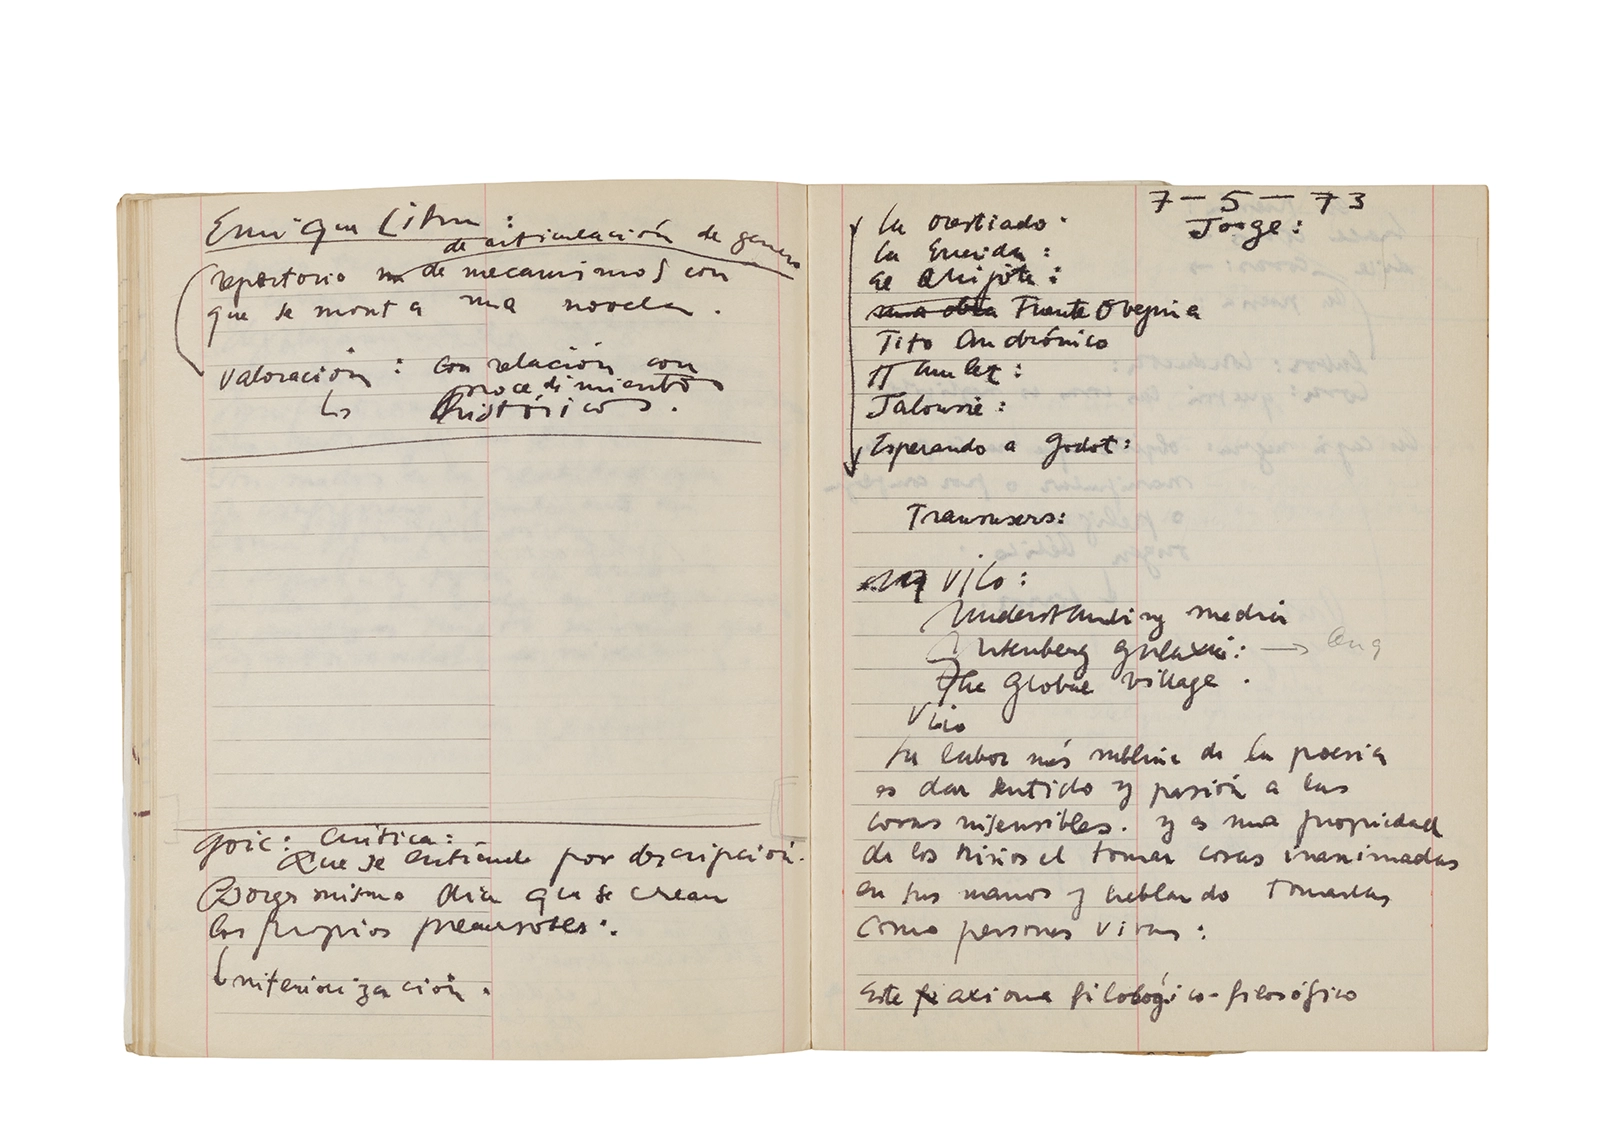 Enrique Lihn :
de articulación de genero
repertorio de mecanismos con
que se monta una novela .
valoración : con relación con
los procedimientos
históricos .
Goic : Crítica :
Que se entiende por descripción.
Borges mismo dice que se crean
los propios precursores :.
Interiorización .
7 - 5 - 73
Jorge :
La Orestiada .
La Eneida :
El Quijote :
una obra Fuente Ovejuna
Tito Andrónico
Hamlet :
Jalousie :
Esperando a Godot :
Transusers :
Vico :
Understanding media
Gutenberg galaxia : → Ang
The Global Village .
Vico
La labor más sublime de la poesia
es dar sentido y pasión a las
cosas insensibles . y es una propiedad
de los niños el tomar cosas inanimadas
en sus manos y hablando tomarlas
como personas vivas :
Este axioma filológico-filosófico